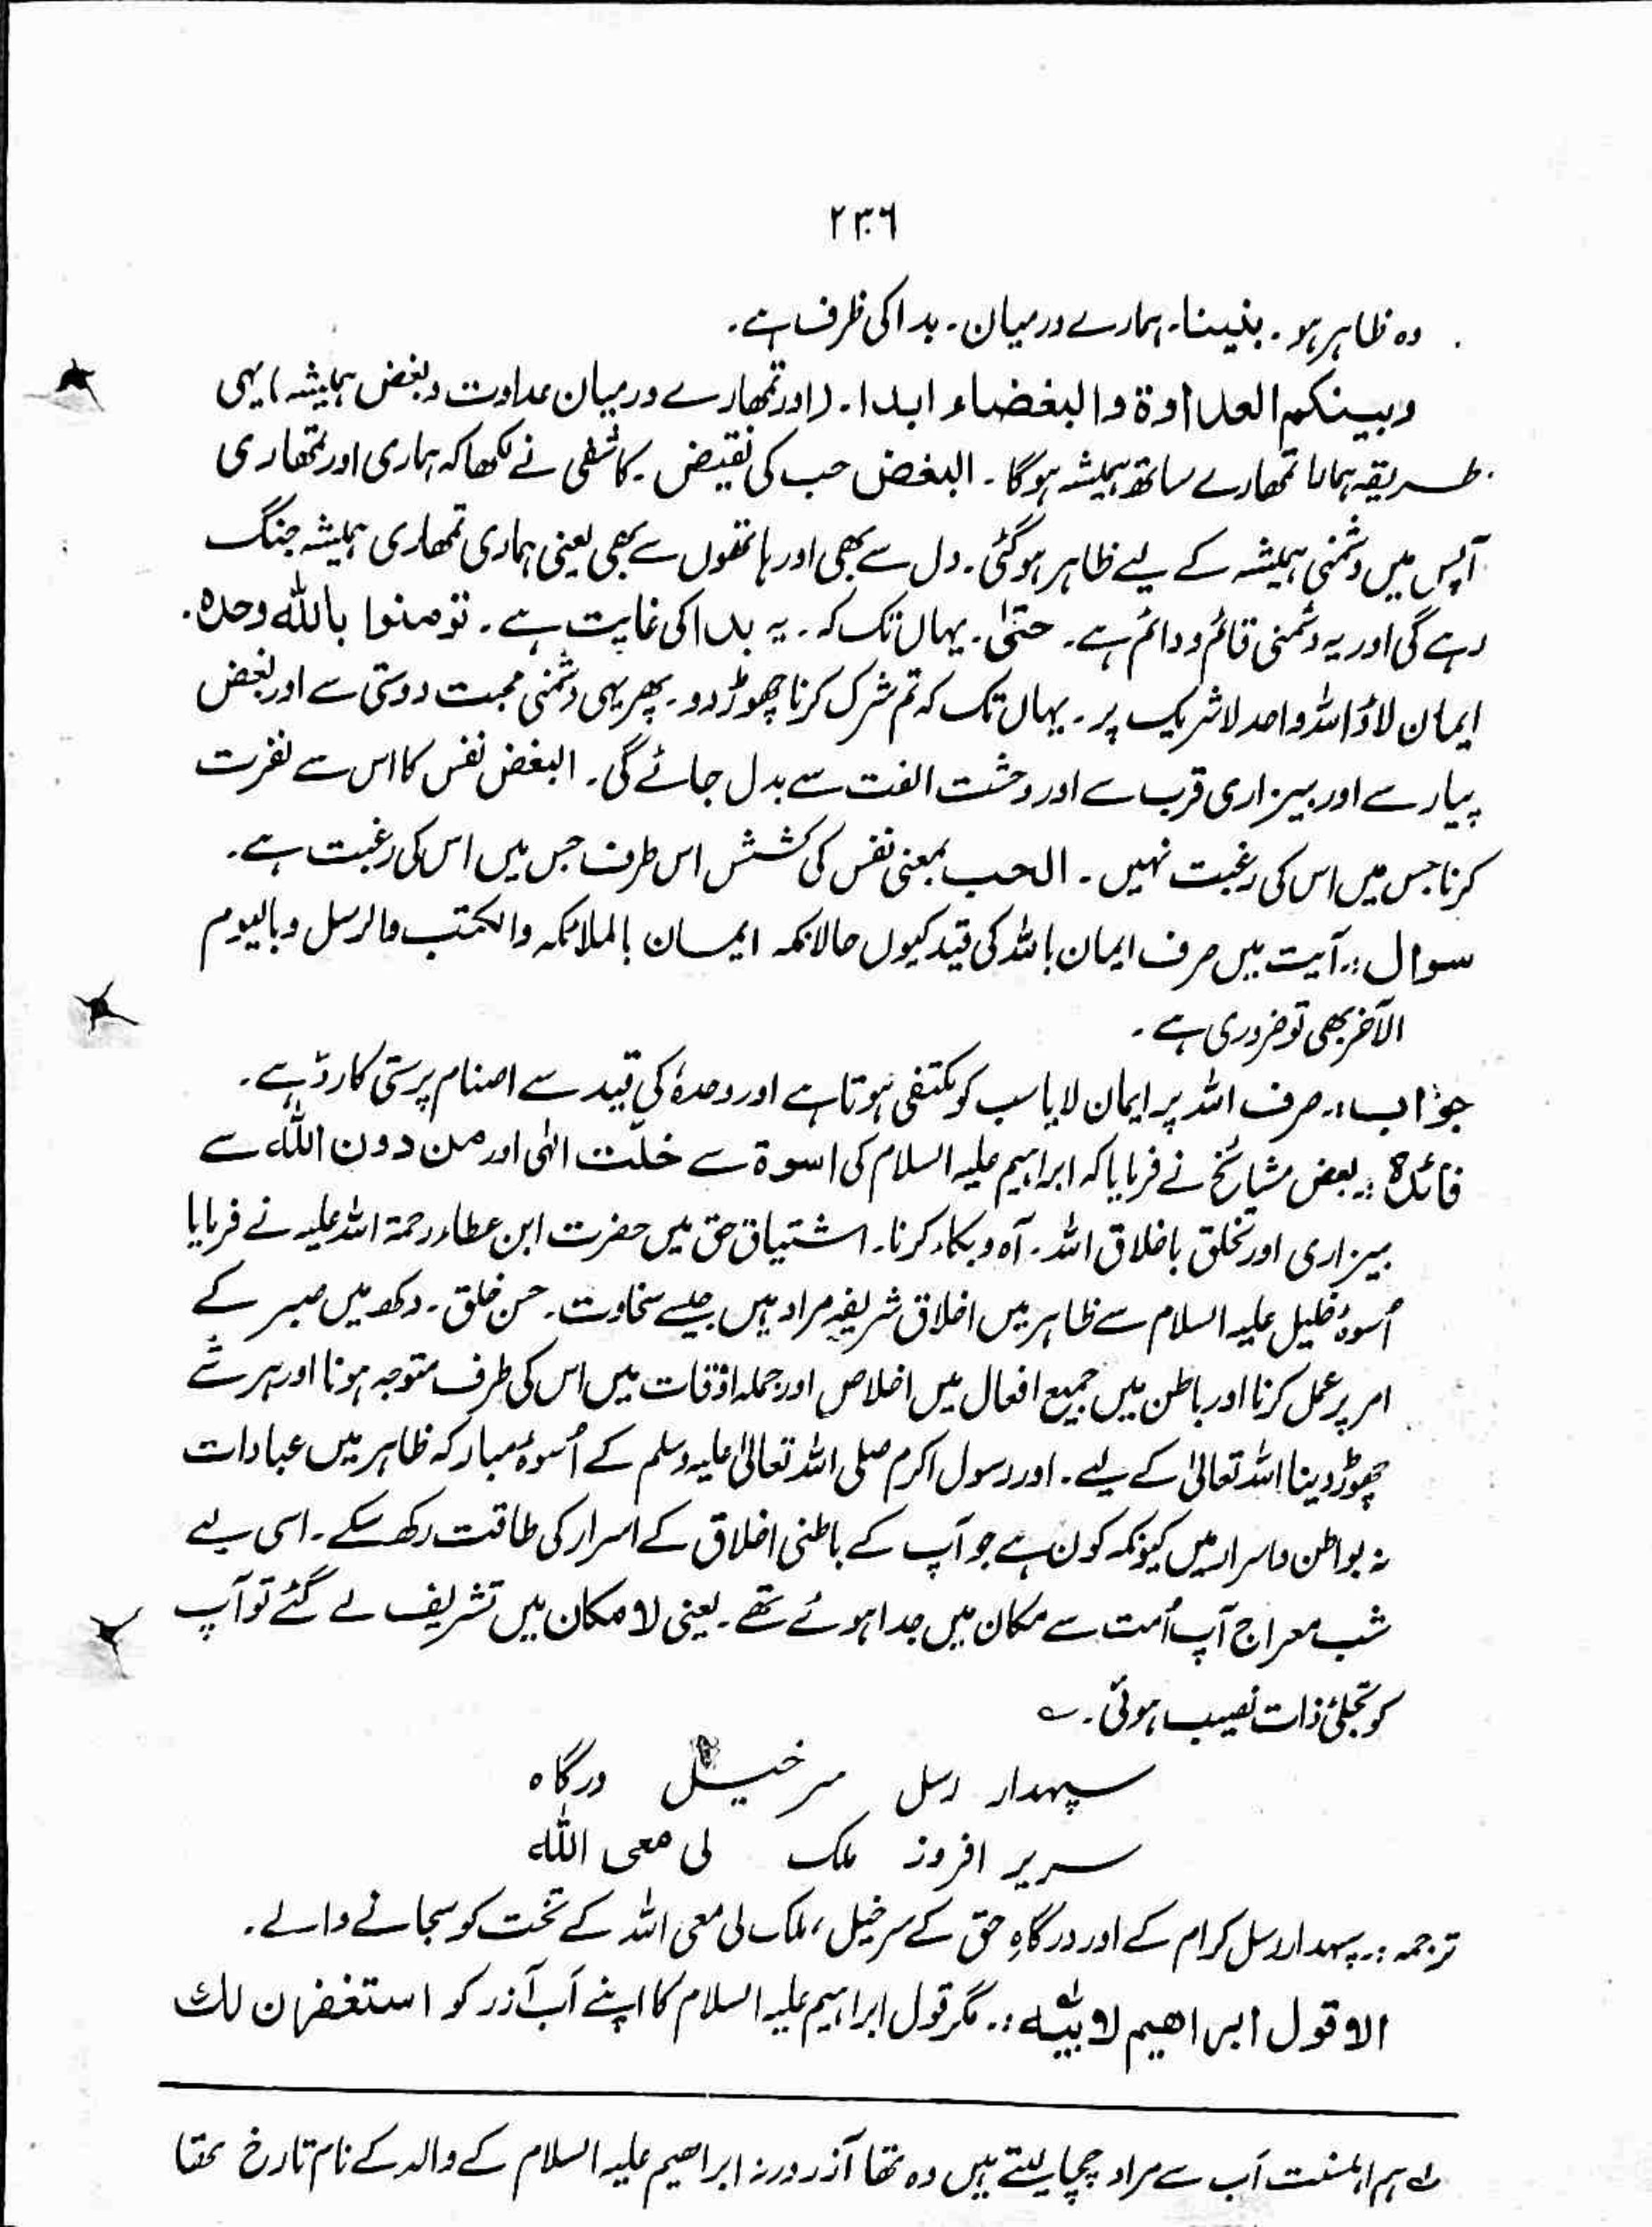 ۲۳۶
وہ ظاہر ہو۔ بنیینا۔ ہمارے درمیان۔ بدا کی ظرف ہے۔
وبینکم العداوة والبغضاء ابدا۔ (اور تمہارے درمیان عداوت وبغض ہمیشہ) یہی
طریقہ ہمارا تمھارے ساتھ ہمیشہ ہوگا۔ البغض حب کی نقیض۔ کاشفی نے لکھا کہ ہماری اور تمھاری
آپس میں دشمنی ہمیشہ کے لیے ظاہر ہوگئی۔ دل سے بھی اور ہاتھوں سے بھی یعنی ہماری تمھاری ہمیشہ جنگ
رہے گی اور یہ دشمنی قائم و دائم ہے۔ حتیٰ۔ یہاں تک کہ۔ یہ بدا کی غایت ہے۔ تومنوا باللہ وحدہ۔
ایمان لاؤ اللہ واحد لاشریک پر۔ یہاں تک کہ تم شرک کرنا چھوڑ دو۔ پھر یہی دشمنی محبت دوستی سے اور بغض
پیار سے اور بیزاری قرب سے اور وحشت الفت سے بدل جائے گی۔ البغض نفس کا اس سے نفرت
کرنا جس میں اس کی رغبت نہیں۔ الحب بمعنی نفس کی کشش اس طرف جس میں اس کی رغبت ہے۔
سوال :۔ آیت میں صرف ایمان باللہ کی قید کیوں حالانکہ ایمان بالملائکہ والکتب والرسل وبالیوم
الآخر بھی تو ضروری ہے۔
جواب :۔ صرف اللہ پر ایمان لایا سب کو مکتفی ہوتا ہے اور وحدہٗ کی قید سے اصنام پرستی کا ردّ ہے۔
فائدہ :۔ بعض مشائخ نے فرمایا کہ ابراہیم علیہ السلام کی اسوة سے خلّت الٰہی اور من دون اللہ سے
بیزاری اور تخلق باخلاق اللہ۔ آہ و بکاء کرنا۔ اشتیاق حق میں حضرت ابن عطاء رحمۃ اللہ علیہ نے فرمایا
اُسوۂ خلیل علیہ السلام سے ظاہر میں اخلاق شریفہ مراد ہیں جیسے سخاوت۔ حسن خلق۔ دکھ میں صبر کے
امر پر عمل کرنا اور باطن میں جمیع افعال میں اخلاص اور جملہ اوقات میں اس کی طرف متوجہ ہونا اور ہر شے
چھوڑ دینا اللہ تعالیٰ کے لیے۔ اور رسول اکرم صلی اللہ تعالیٰ علیہ وسلم کے اُسوۂ مبارکہ ظاہر میں عبادات
نہ بواطن واسرار میں کیونکہ کون ہے جو آپ کے باطنی اخلاق کے اسرار کی طاقت رکھ سکے۔ اسی لیے
شب معراج آپ اُمت سے مکان میں جدا ہوئے تھے۔ یعنی لا مکان میں تشریف لے گئے تو آپ
کو تجلیٔ ذات نصیب ہوئی۔ ؎
سپہدار رسل سرخیل درگاہ
سریر افروز ملک لی مع اللہ
ترجمہ :۔ سپہدار رسل کرام کے اور درگاہِ حق کے سرخیل، ملک لی مع اللہ کے تخت کو سجانے والے۔
الا قول ابراھیم لابیہ :۔ مگر قول ابراہیم علیہ السلام کا اپنے اَب آذر کو استغفرن لك
لے ہم اہلسنت اَب سے مراد چچا لیتے ہیں وہ تھا آذر ورنہ ابراھیم علیہ السلام کے والد کے نام تارخ تھا